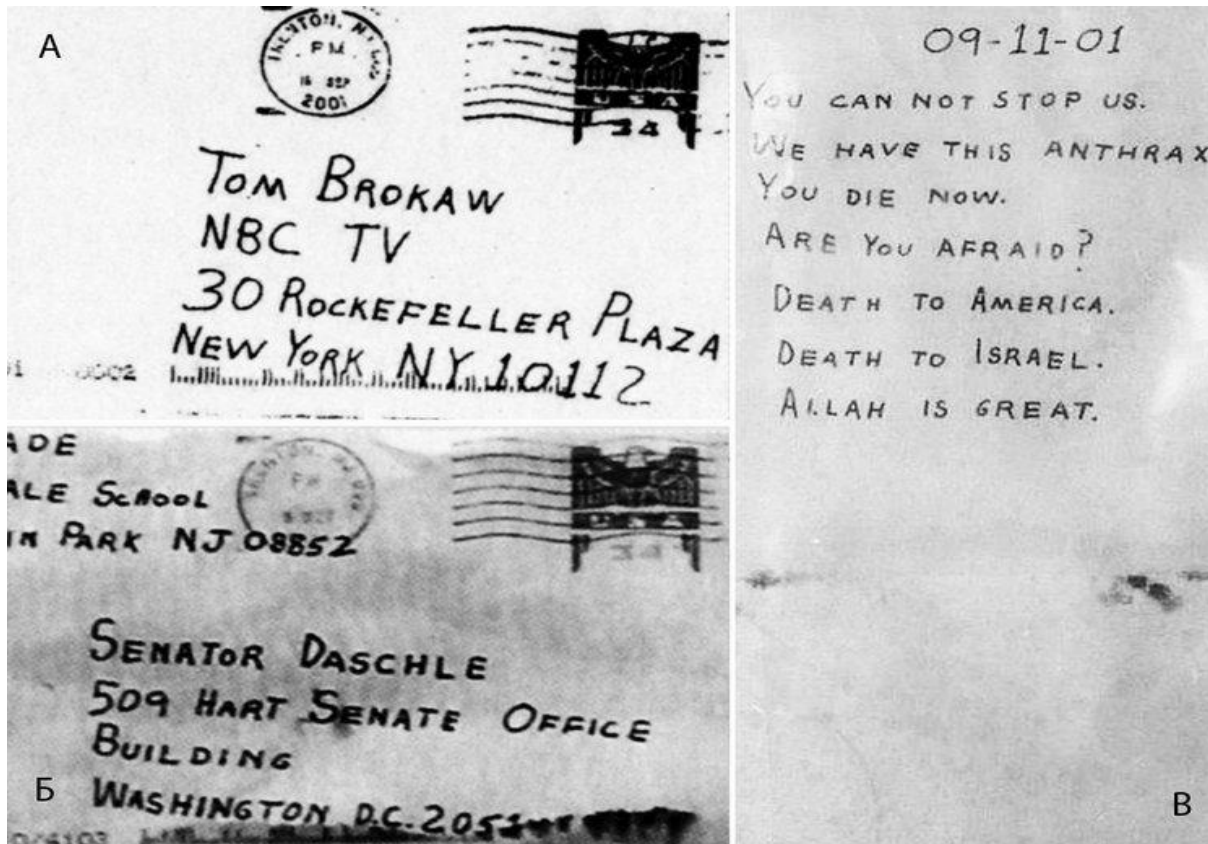 А
TRENTON, NJ
P.M
18 SEP
2001
USA
34
TOM BROKAW
NBC TV
30 ROCKEFELLER PLAZA
NEW YORK NY 10112
ADE
ALE SCHOOL
IN PARK NJ 08852
PM
34
SENATOR DASCHLE
509 HART SENATE OFFICE
BUILDING
WASHINGTON D.C. 2051
Б
09-11-01
YOU CAN NOT STOP US.
WE HAVE THIS ANTHRAX
YOU DIE NOW.
ARE YOU AFRAID?
DEATH TO AMERICA.
DEATH TO ISRAEL.
ALLAH IS GREAT.
В